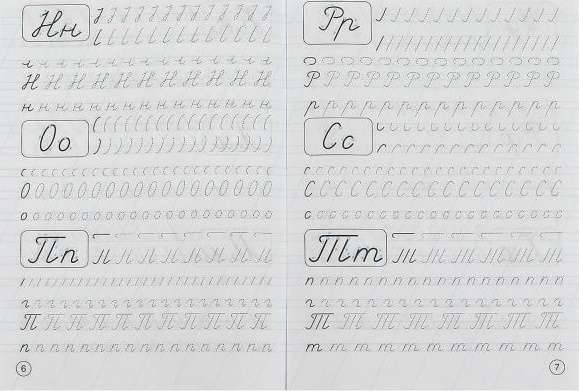 Нн
Н Н Н Н Н Н Н Н Н Н Н
н н н н н н н н н н н н н н н
Оо
О О О О О О О О О О О О О О О О О О
о о о о о о о о о о о о о о о о о о о о
Пп
П П П П П П П П П П П
п п п п п п п п п п п п п п п п
6
Рр
Р Р Р Р Р Р Р Р Р Р Р Р Р
р р р р р р р р р р р р р р
Сс
С С С С С С С С С С С С С С С С С
с с с с с с с с с с с с с с с с с
Тт
п п п п п п п п п п п п п п п п
г г г г г г г г г г г г г г г г
Т Т Т Т Т Т Т Т
т т т т т т т т т т т
7